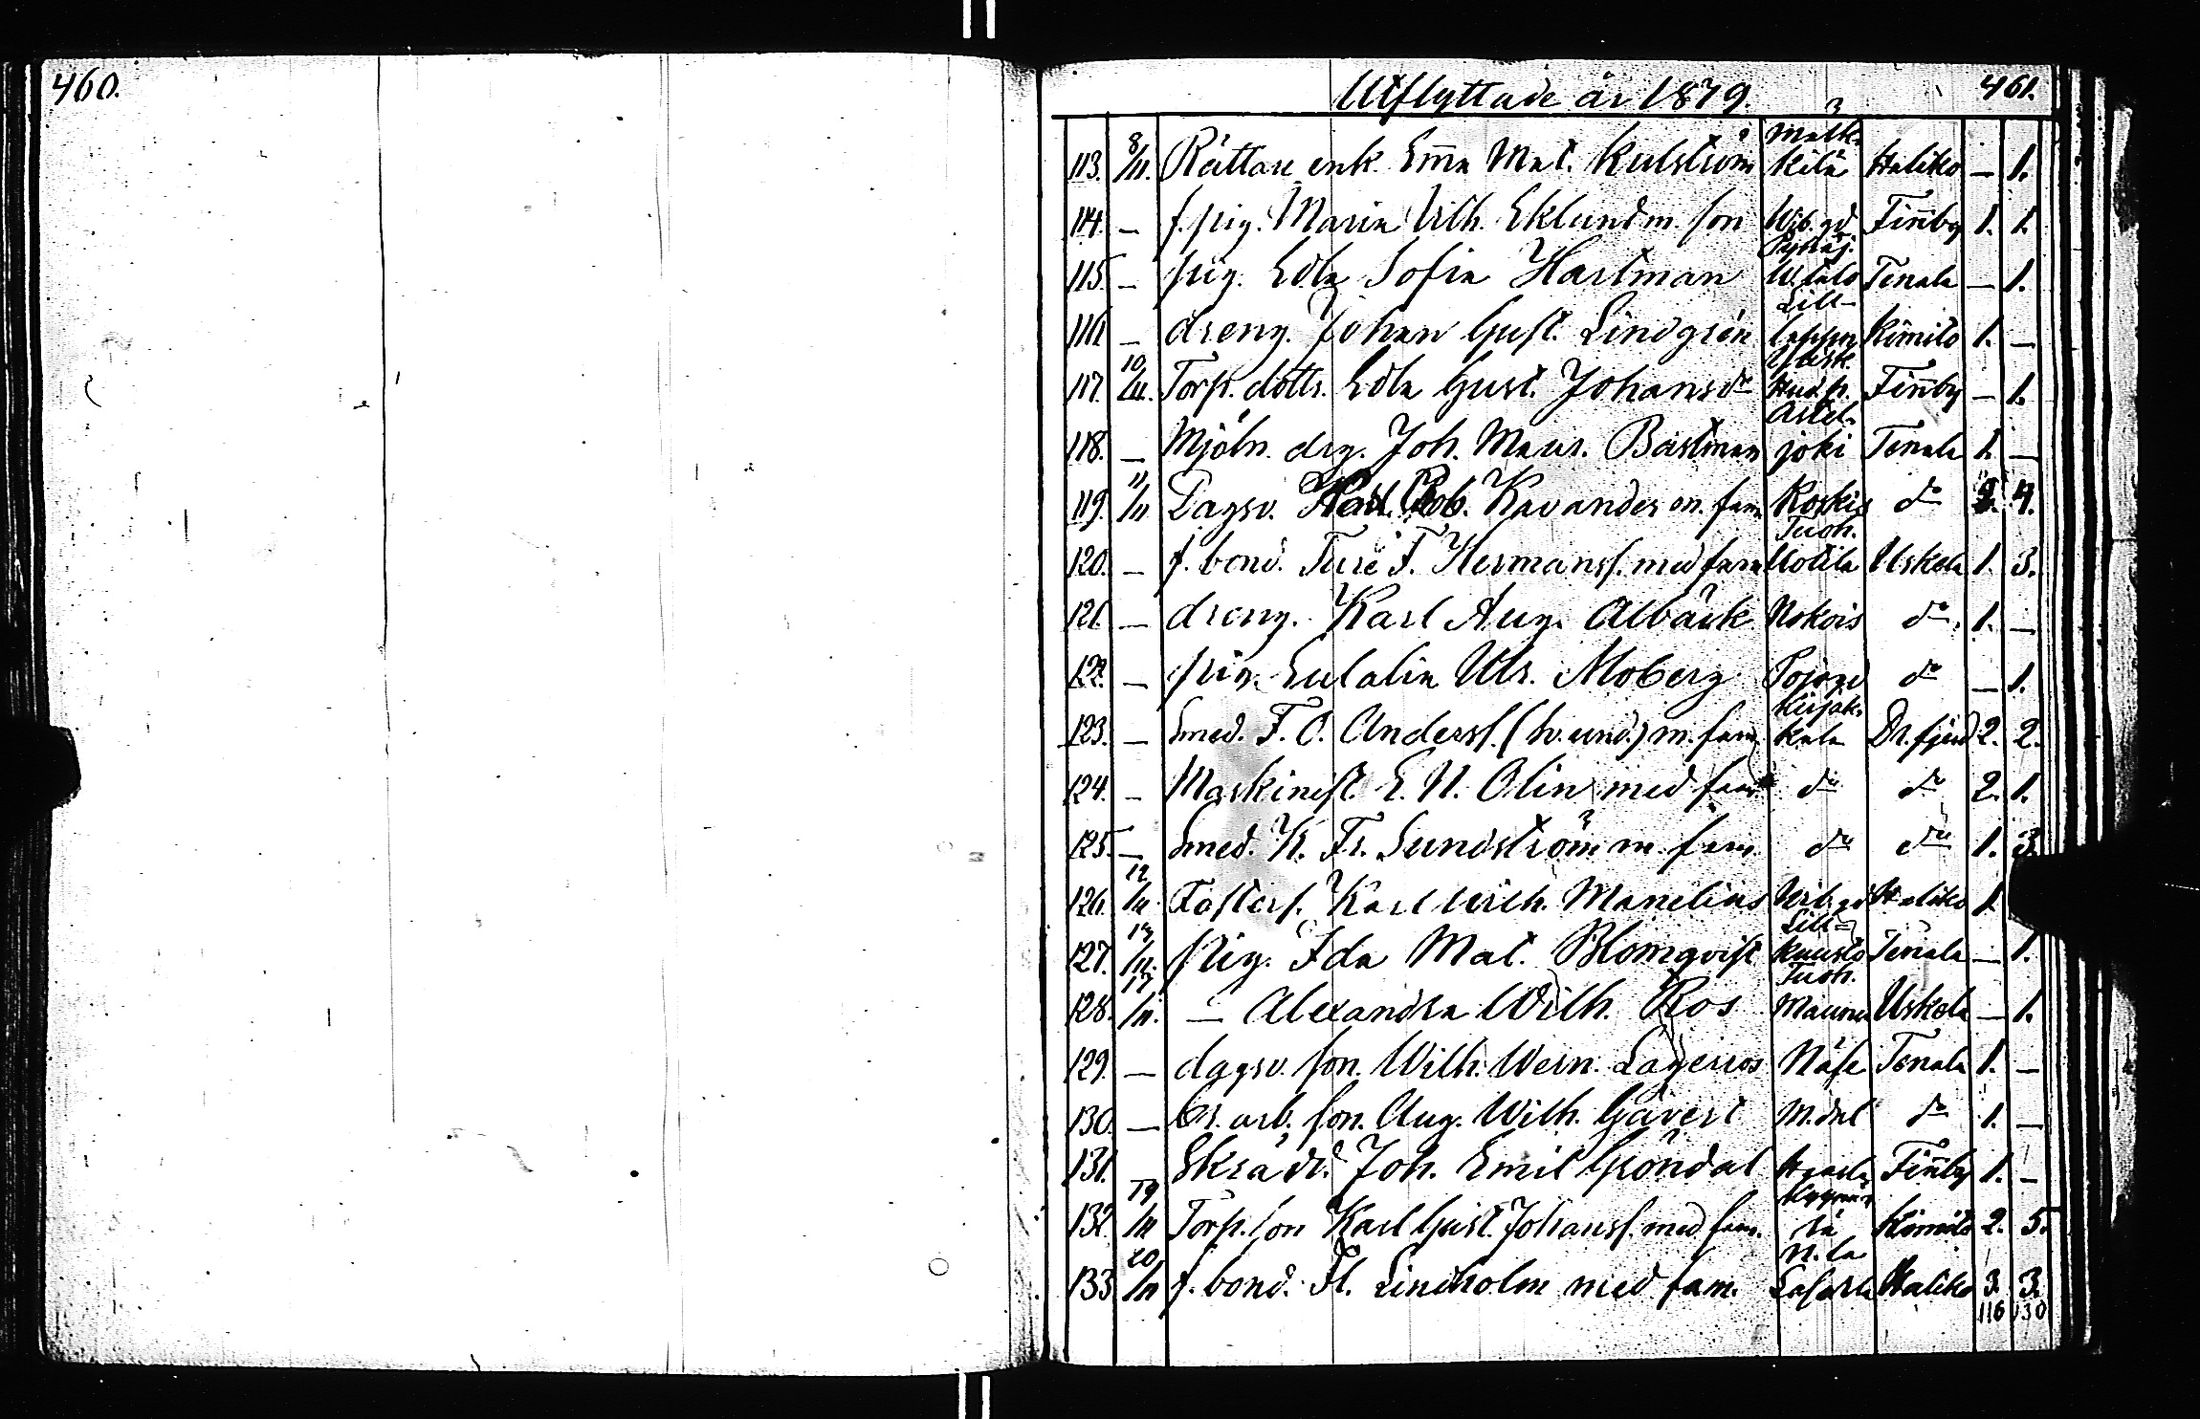 460.
Utflyttade år 1879. 461.
113. 8/11. Rättare enk. Em̄a Mat. Kulström Mälk. Kilä Haliko — 1.
114. — f. pig. Maria Vilh. Eklund m. son Wib. gd Finby 1. 1.
115. — pig. Edla Sofia Hartman U.talo Tenala — 1.
116. — dreng. Johan Gust. Lindgrén Lill- Kimito 1. —
117. 10/11. Torp. dottr. Edla Gust. Johansdr Finby — 1.
118. — Mjöln. drg. Joh. Maur. Bastman joki Tenala 1. —
119. 11/11 Dagsv. Karl Rob. Kavander m. fam. Koskis do 4.
120. — f. bond. Ture F. Hermanss. med fam Tuoh. Uotila Uskela 1. 3.
121. — dreng. Karl Aug. Albäck Nokois do. 1. —
122. — pig. Eulalia Ulr. Moberg Pojogd do — 1.
123. — Smed. F. O. Anderss. (hv. und.) m. fam. Kirjak- kala Dr. fjerd 2. 2.
124. — Maskinist. E. N. Olin med fam do do 2. 1.
125. — Smed. K. Fr. Sundström m. fam. do do 1. 3.
126. 12/11. Fosters. Karl Wilh. Manelius Wib. gd Haliko 1.
127. 13/11. pig. Ida Mat. Blomqvist Lill- kuusto Tenala — 1.
128. 17/11. — Alexandra Wilh. Ros Tuoh. Maunu Uskela — 1.
129. — dagsv. son. Wilh. Wern. Lagerros Näse Tenala 1. —
130. — br. arb. son. Aug. Wilh. Gävert M.dal do 1. —
131. Skrädd. Joh. Emil Gröndal Finby 1. —
132. 19/11 Torp. son Karl Gust. Johanss. med fam. Kimito 2. 5.
133. 20/11 f. bond. Fl. Lindholm med fam. N. la Haliko 3. 3.
116 130